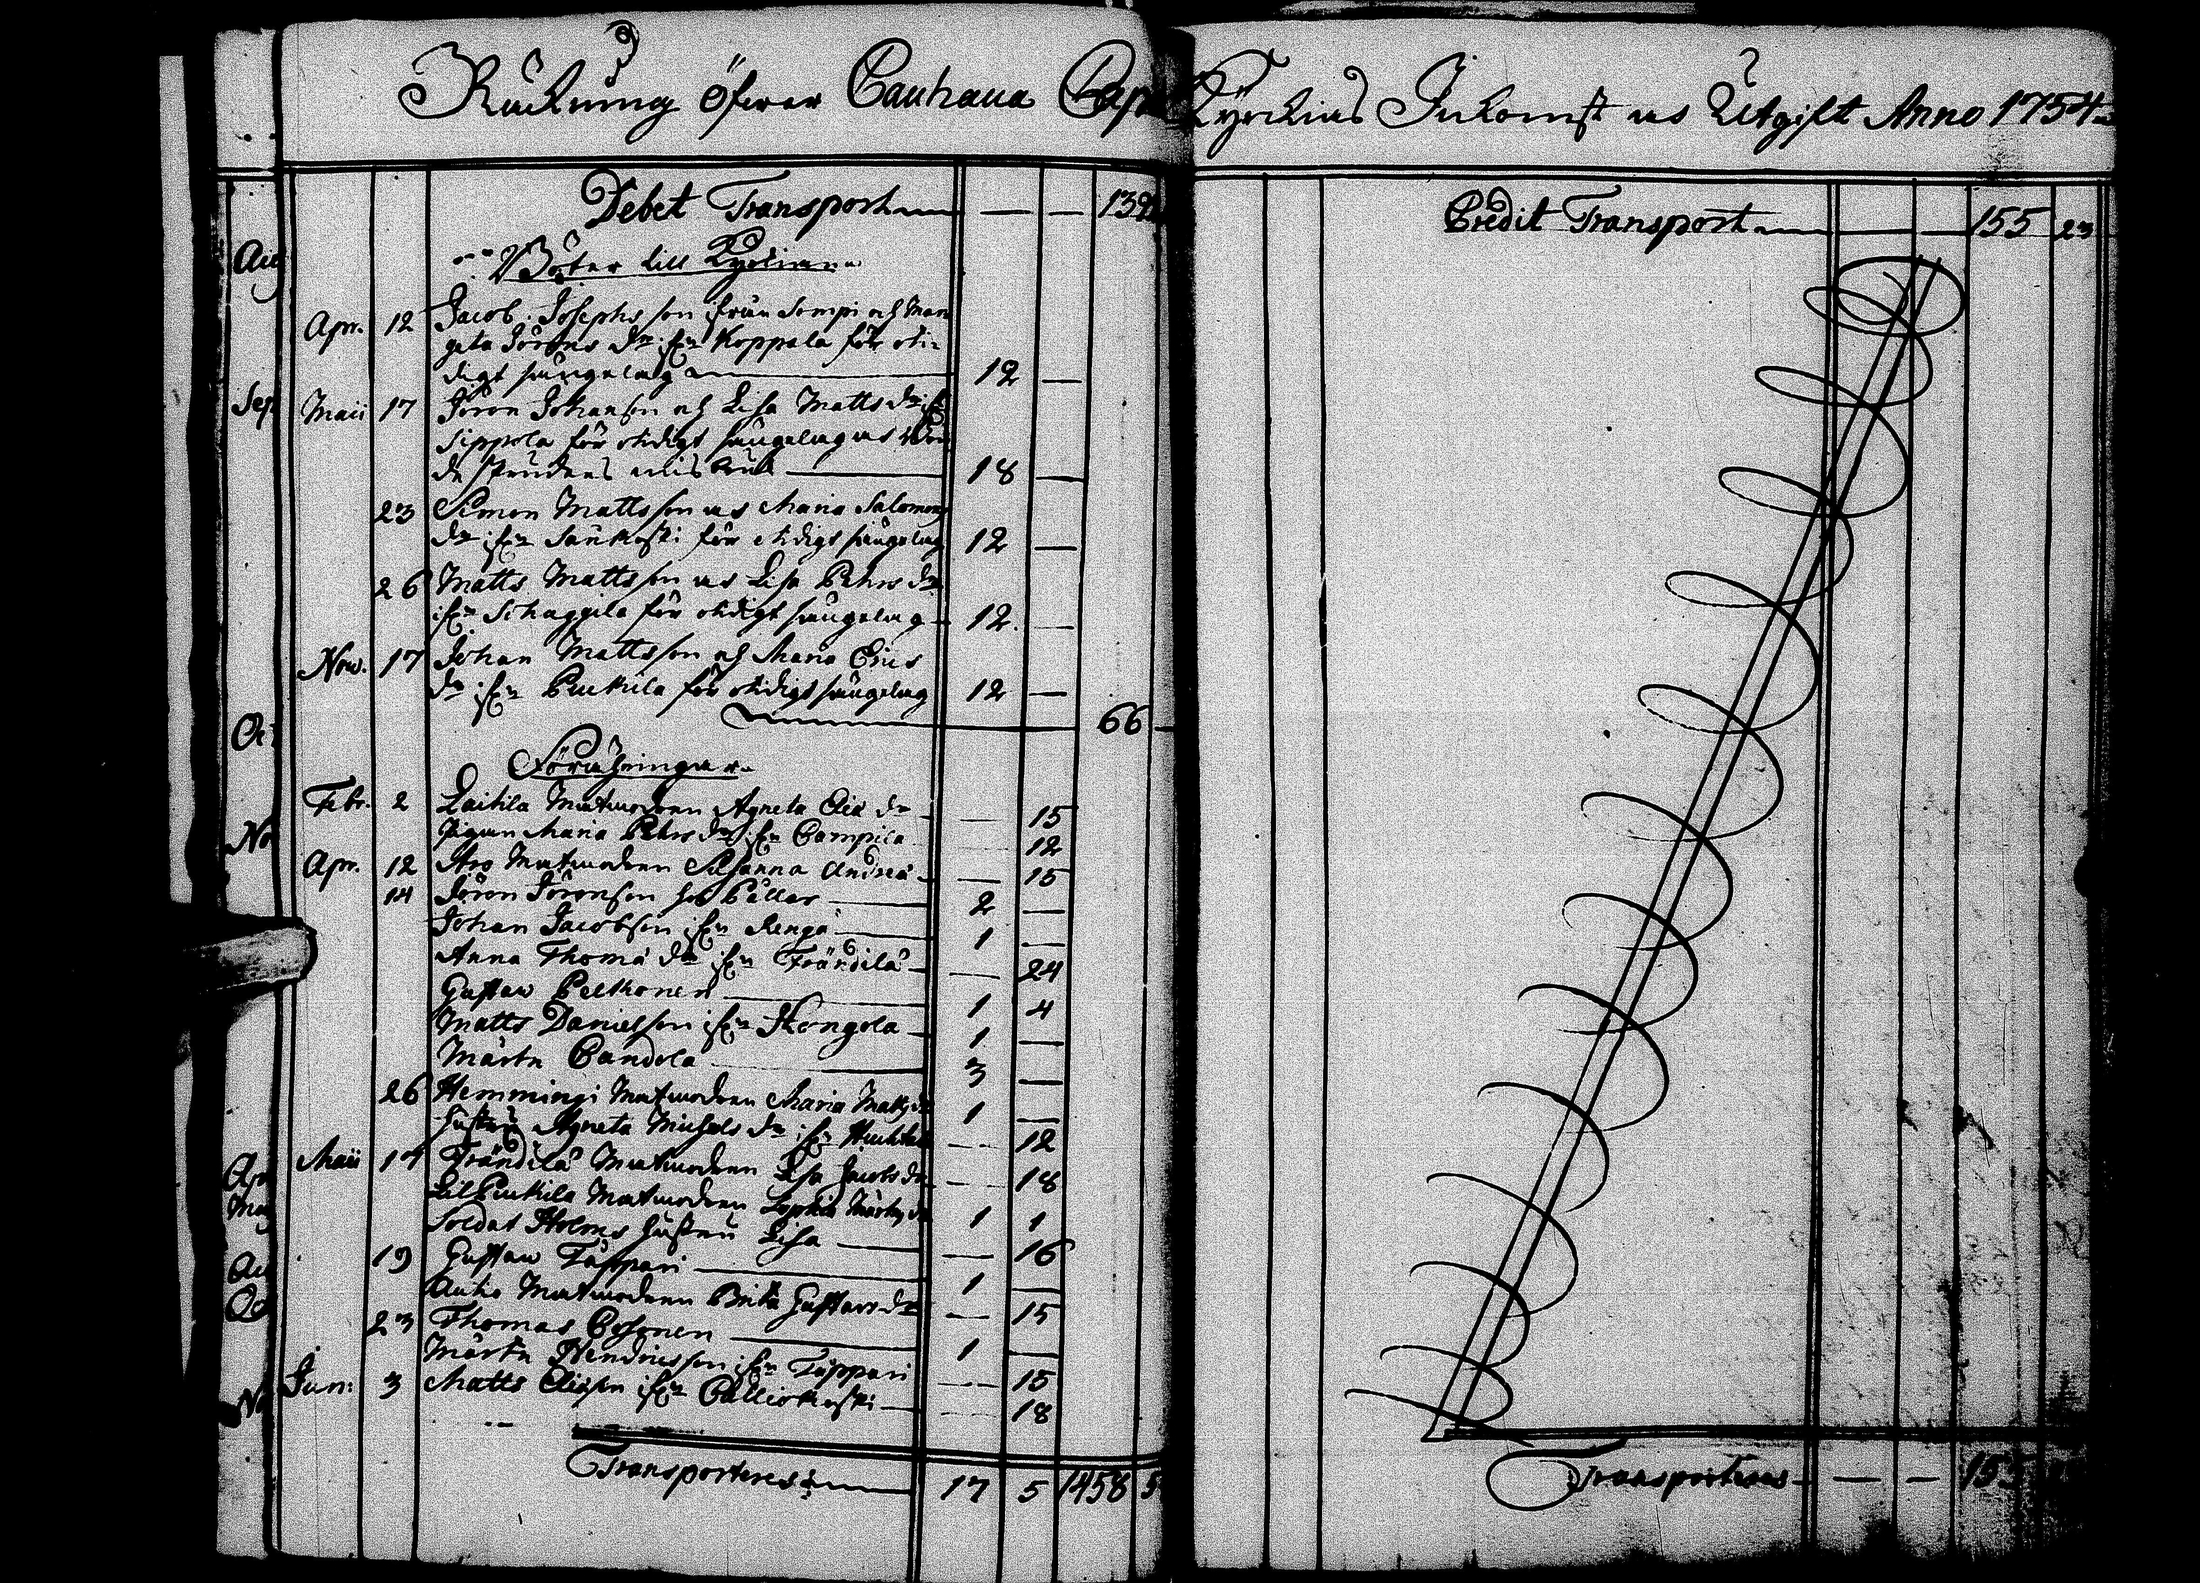 Räckning öfwer Cauhava Cap Kyrckias Inkomst och Utgift Anno 1754
Debet Transport — — 139
Böter till Kyrckian
Apr. 12 Jacob Josephs son ifrån Sompi och Mar
greta Jörans dr ifrn Koppala för oti
digt sängelag 12 —
Maii 17 Jöran Johansson och Lisa Matts dr ifrn
Sippola för otidigt sängelag och
18 —
23 Simon Mattsson och Maria Salomons
dr ifrn Sankoski för otidigt sängelag 12 —
26 Matts Mattsson och Lisa Pehrs dr
ifrn Schaggila för otidigt sängelag 12 —
Now. 17 Johan Mattsson och Maria Erics
dr ifrn Puckila för otidigt sängelag 12 —
66
Föräringar
Febr. 2 Laitila Matmodren Agneta Eliæ dr — 15
Pigan Maria Pehrs dr ifrn Campila — 12
Apr. 12 Aro Matmodren Susanna Andreæ — 15
14 Jöran Jöransson hos Pällar 2 —
Johan Jacobsson ifrn Renga 1 —
Anna Thomæ dr ifrn Frändilä — 24
Gustaw Pelkonen 1 4
Matts Danielsson ifrn Kongola 1 —
Märtn Candola 3 —
26 Hemmingi Matmodren Maria Matts dr 1 —
Hustru Agneta Michels dr ifrn — 12
Maii 17 Frändilä Matmodren Lisa Jacobs dr — 18
Lill Puckila Matmodren Sophia Märtns dr 1 1
Soldat Holms hustru Lisa — 16
19 Gustaw Tåppari 1 —
Auho Matmodren Brita Gustavs dr — 15
23 Thomas Posonen 1 —
Märtn Hendricsson ifrn Tåppari — 15
Jun: 3 Matts Eliæson ifrn Calliokoski — 18
Transporteres 17 5 1458 5
Credit Transport 155 23
Transporteres — — 155